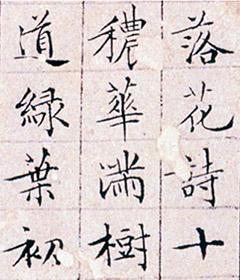 落花詩十
穠華滿樹
道緑葉初